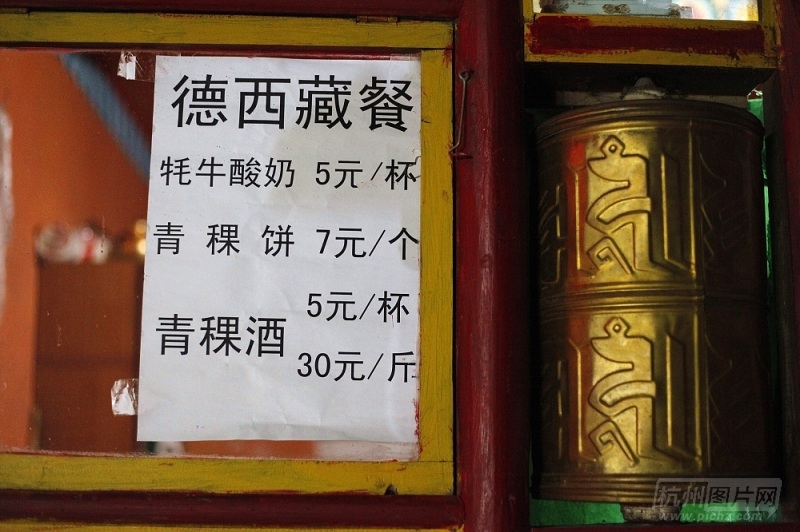 德西藏餐
牦牛酸奶 5元/杯
青稞饼 7元/个
青稞酒 5元/杯
30元/斤
杭州图片网
www.pichz.com